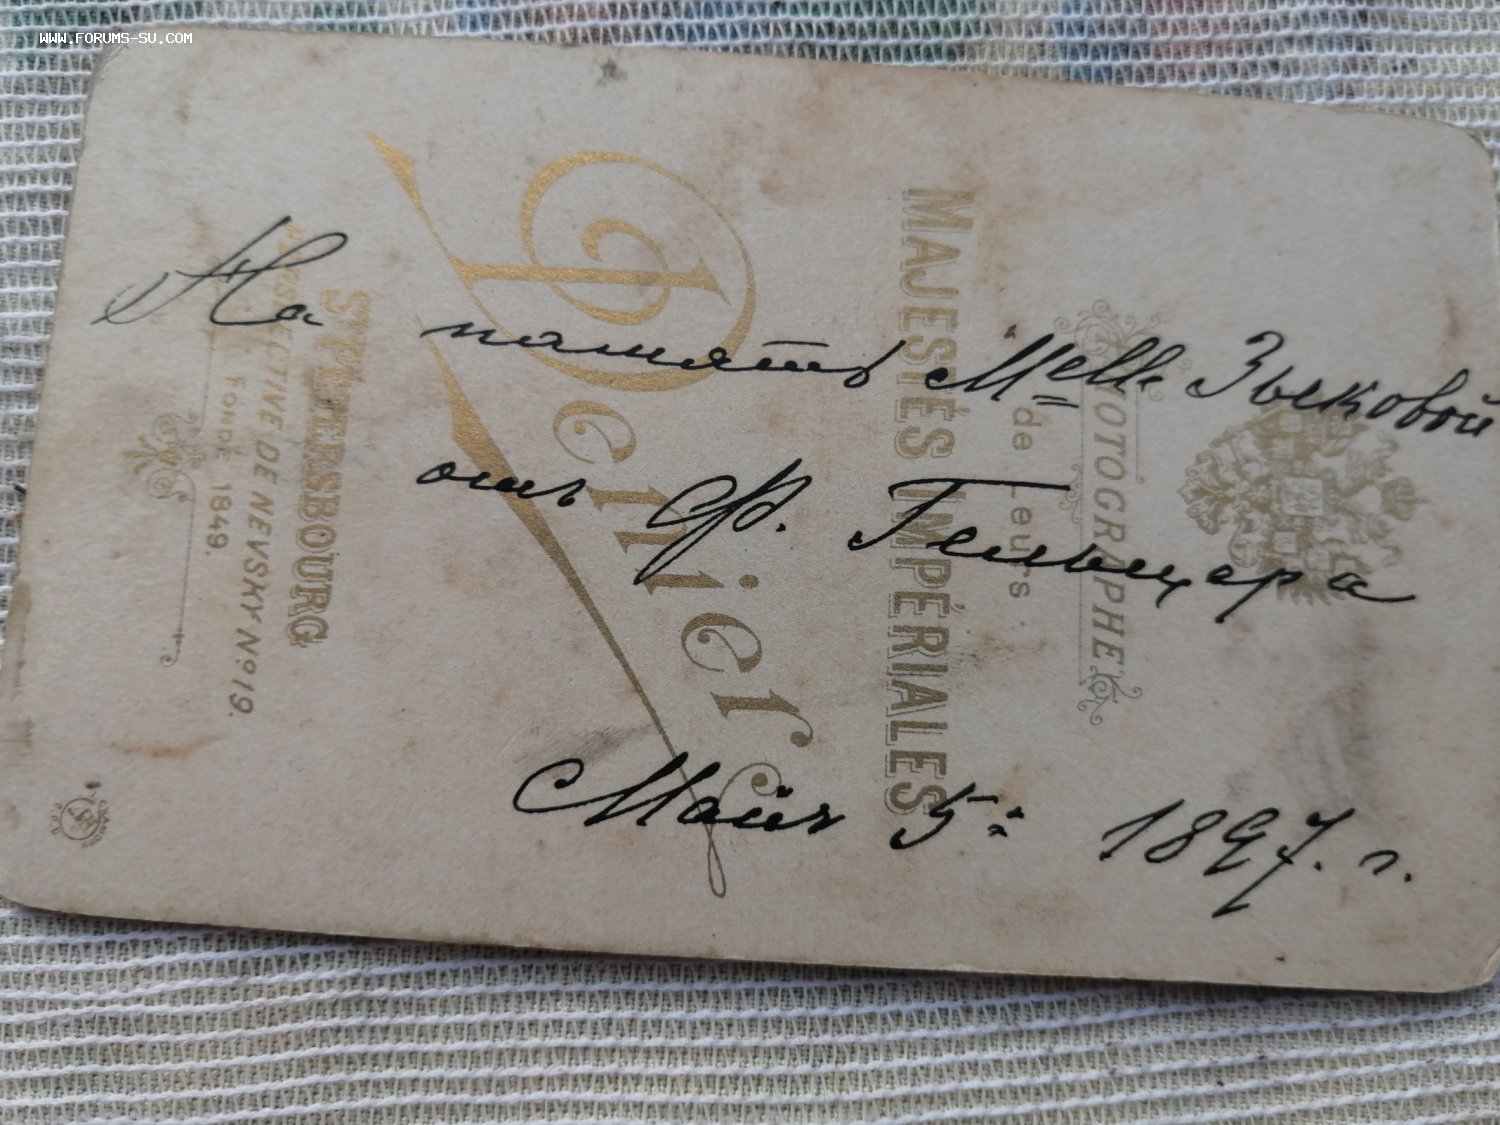 WWW.FORUMS-SU.COM
На память Melle Зыковой
отъ Ф. Гельцера
Майя 5: 1897. г.
PHOTOGRAPHE
de Leurs
MAJESTÉS IMPÉRIALES
Denier
ST PETERSBOURG
PERSPECTIVE DE NEVSKY No 19.
FONDÉ 1849.